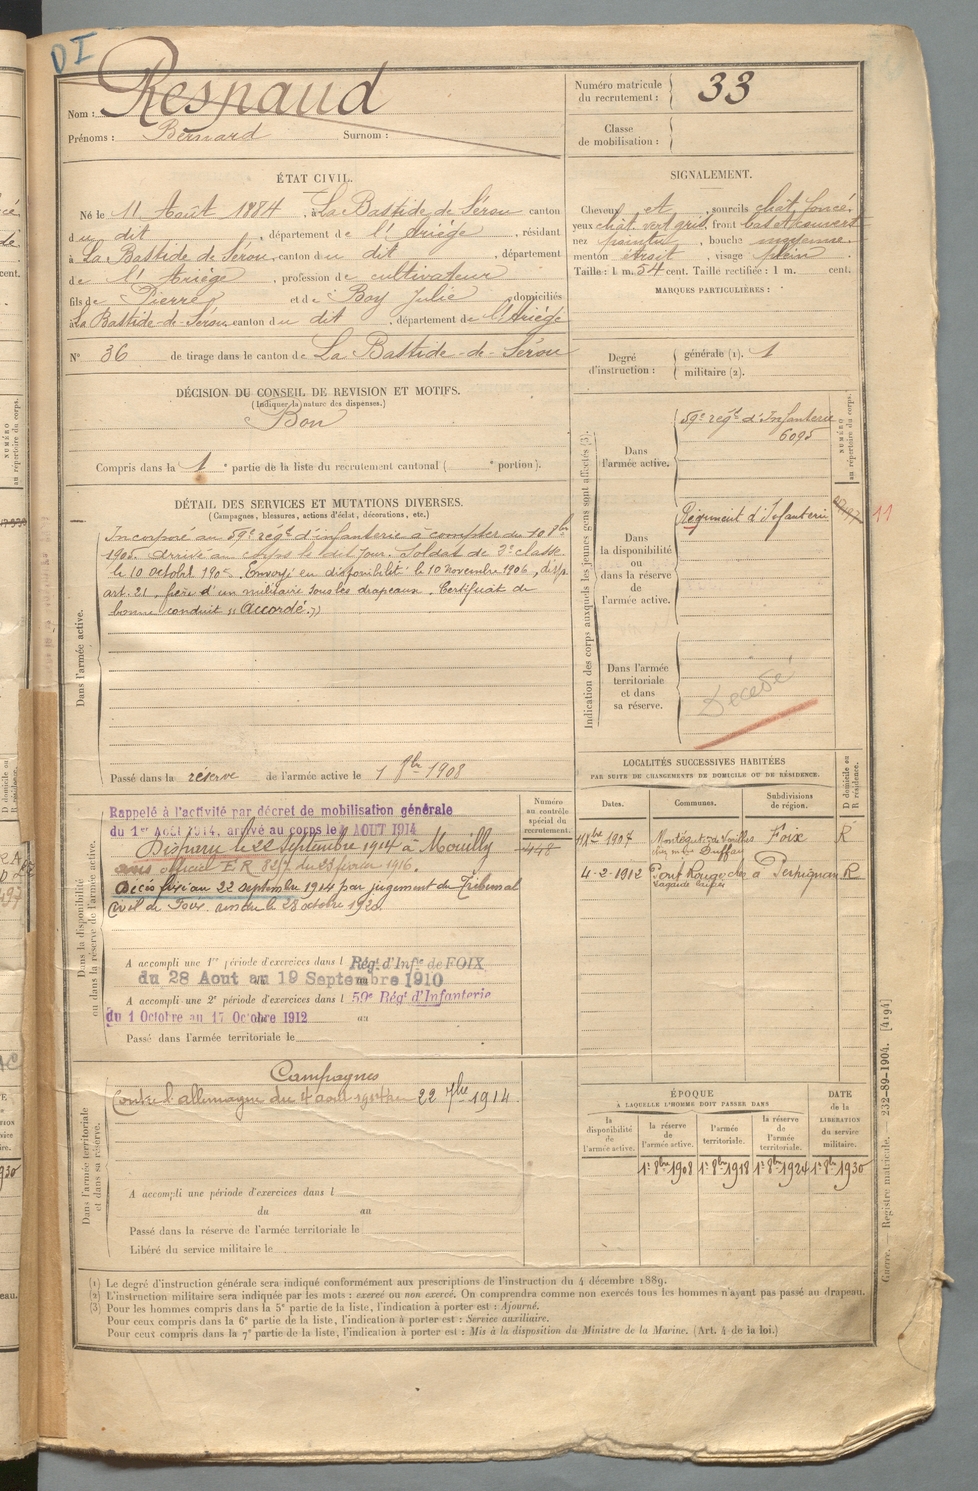 DI
Nom : Respaud
Prénoms : Bernard Surnom :
Numéro matricule du recrutement : 33
Classe de mobilisation :
ÉTAT CIVIL.
Né le 11 Août 1884, à La Bastide de Sérou canton
du dit, département de l'Ariège, résidant
à La Bastide de Sérou, canton du dit, département
de l'Ariège, profession de cultivateur
fils de Pierre et de Boy Julie, domiciliés
à La Bastide-de-Sérou canton du dit, département de l'Ariège
N° 36 de tirage dans le canton de La Bastide-de-Sérou
SIGNALEMENT.
Cheveux et, sourcils chât. foncé.
yeux chât. vert gris, front bas et couvert
nez pointu, bouche moyenne.
menton étroit, visage plein
Taille : 1 m. 54 cent. Taille rectifiée : 1 m. cent.
MARQUES PARTICULIÈRES :
Degré d'instruction : générale (1). 1
militaire (2).
DÉCISION DU CONSEIL DE REVISION ET MOTIFS.
(Indiquer la nature des dispenses.)
Bon
Compris dans la 1e partie de la liste du recrutement cantonal ( e portion).
DÉTAIL DES SERVICES ET MUTATIONS DIVERSES.
(Campagnes, blessures, actions d'éclat, décorations, etc.)
Dans l'armée active.
Incorporé au 59e regt d'infanterie à compter du 10 8bre
1905. Arrivé au corps le dit jour. Soldat de 2e classe
le 10 octobre 1905. Envoyé en disponibilité le 10 novembre 1906, disp.
art. 21. frère d'un militaire sous les drapeaux. Certificat de
bonne conduite "Accordé."
Passé dans la réserve de l'armée active le 1 8bre 1908
Indication des corps auxquels les jeunes gens sont affectés (3).
Dans l'armée active.
59e regt d'Infanterie
6095
NUMÉRO au répertoire du corps.
Dans la disponibilité ou dans la réserve de l'armée active.
Régiment d'Infanterie
11
Dans l'armée territoriale et dans sa réserve.
Décédé
Dans la disponibilité ou dans la réserve de l'armée active.
Rappelé à l'activité par décret de mobilisation générale
du 1er Août 1914, arrivé au corps le 4 AOUT 1914
Disparu le 22 septembre 1914 à Mouilly
avis officiel E R 827 du 23 février 1916.
Décès fixé au 22 septembre 1914 par jugement du Tribunal
Civil de Foix rendu le 28 octobre 1920.
A accompli une 1re période d'exercices dans l Régt d'Infie de FOIX
du 28 Aout au 19 Septembre 1910
A accompli une 2e période d'exercices dans l 59e Régt d'Infanterie
du 1 Octobre au 17 Octobre 1912 au
Passé dans l'armée territoriale le
Numéro au contrôle spécial du recrutement.
448
LOCALITÉS SUCCESSIVES HABITÉES
PAR SUITE DE CHANGEMENTS DE DOMICILE OU DE RÉSIDENCE.
Dates. Communes. Subdivisions de région. D domicile ou R résidence.
1907 Foix R
4-2-1912 Perpignan R
Dans l'armée territoriale et dans sa réserve.
Campagnes
Contre l'allemagne du 4 aout 1914 au 22 7bre 1914.
A accompli une période d'exercices dans l
du au
Passé dans la réserve de l'armée territoriale le
Libéré du service militaire le
ÉPOQUE
A LAQUELLE L'HOMME DOIT PASSER DANS
la disponibilité de l'armée active. la réserve de l'armée active. l'armée territoriale. la réserve de l'armée territoriale.
DATE de la LIBÉRATION du service militaire.
1er 8bre 1908 1er 8bre 1918 1er 8bre 1924 1er 8bre 1930
(1) Le degré d'instruction générale sera indiqué conformément aux prescriptions de l'instruction du 4 décembre 1889.
(2) L'instruction militaire sera indiquée par les mots : exercé ou non exercé. On comprendra comme non exercés tous les hommes n'ayant pas passé au drapeau.
(3) Pour les hommes compris dans la 5e partie de la liste, l'indication à porter est : Ajourné.
Pour ceux compris dans la 6e partie de la liste, l'indication à porter est : Service auxiliaire.
Pour ceux compris dans la 7e partie de la liste, l'indication à porter est : Mis à la disposition du Ministre de la Marine. (Art. 4 de la loi.)
Guerre. — Registre matricule. — 232-89-1904. [4194]